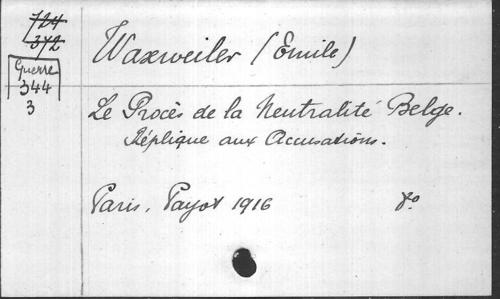 724
372
Guerre
344
3
Waxweiler (Emile)
Le Procès de la Neutralité Belge.
Réplique aux Accusations.
Paris, Payot 1916 8o